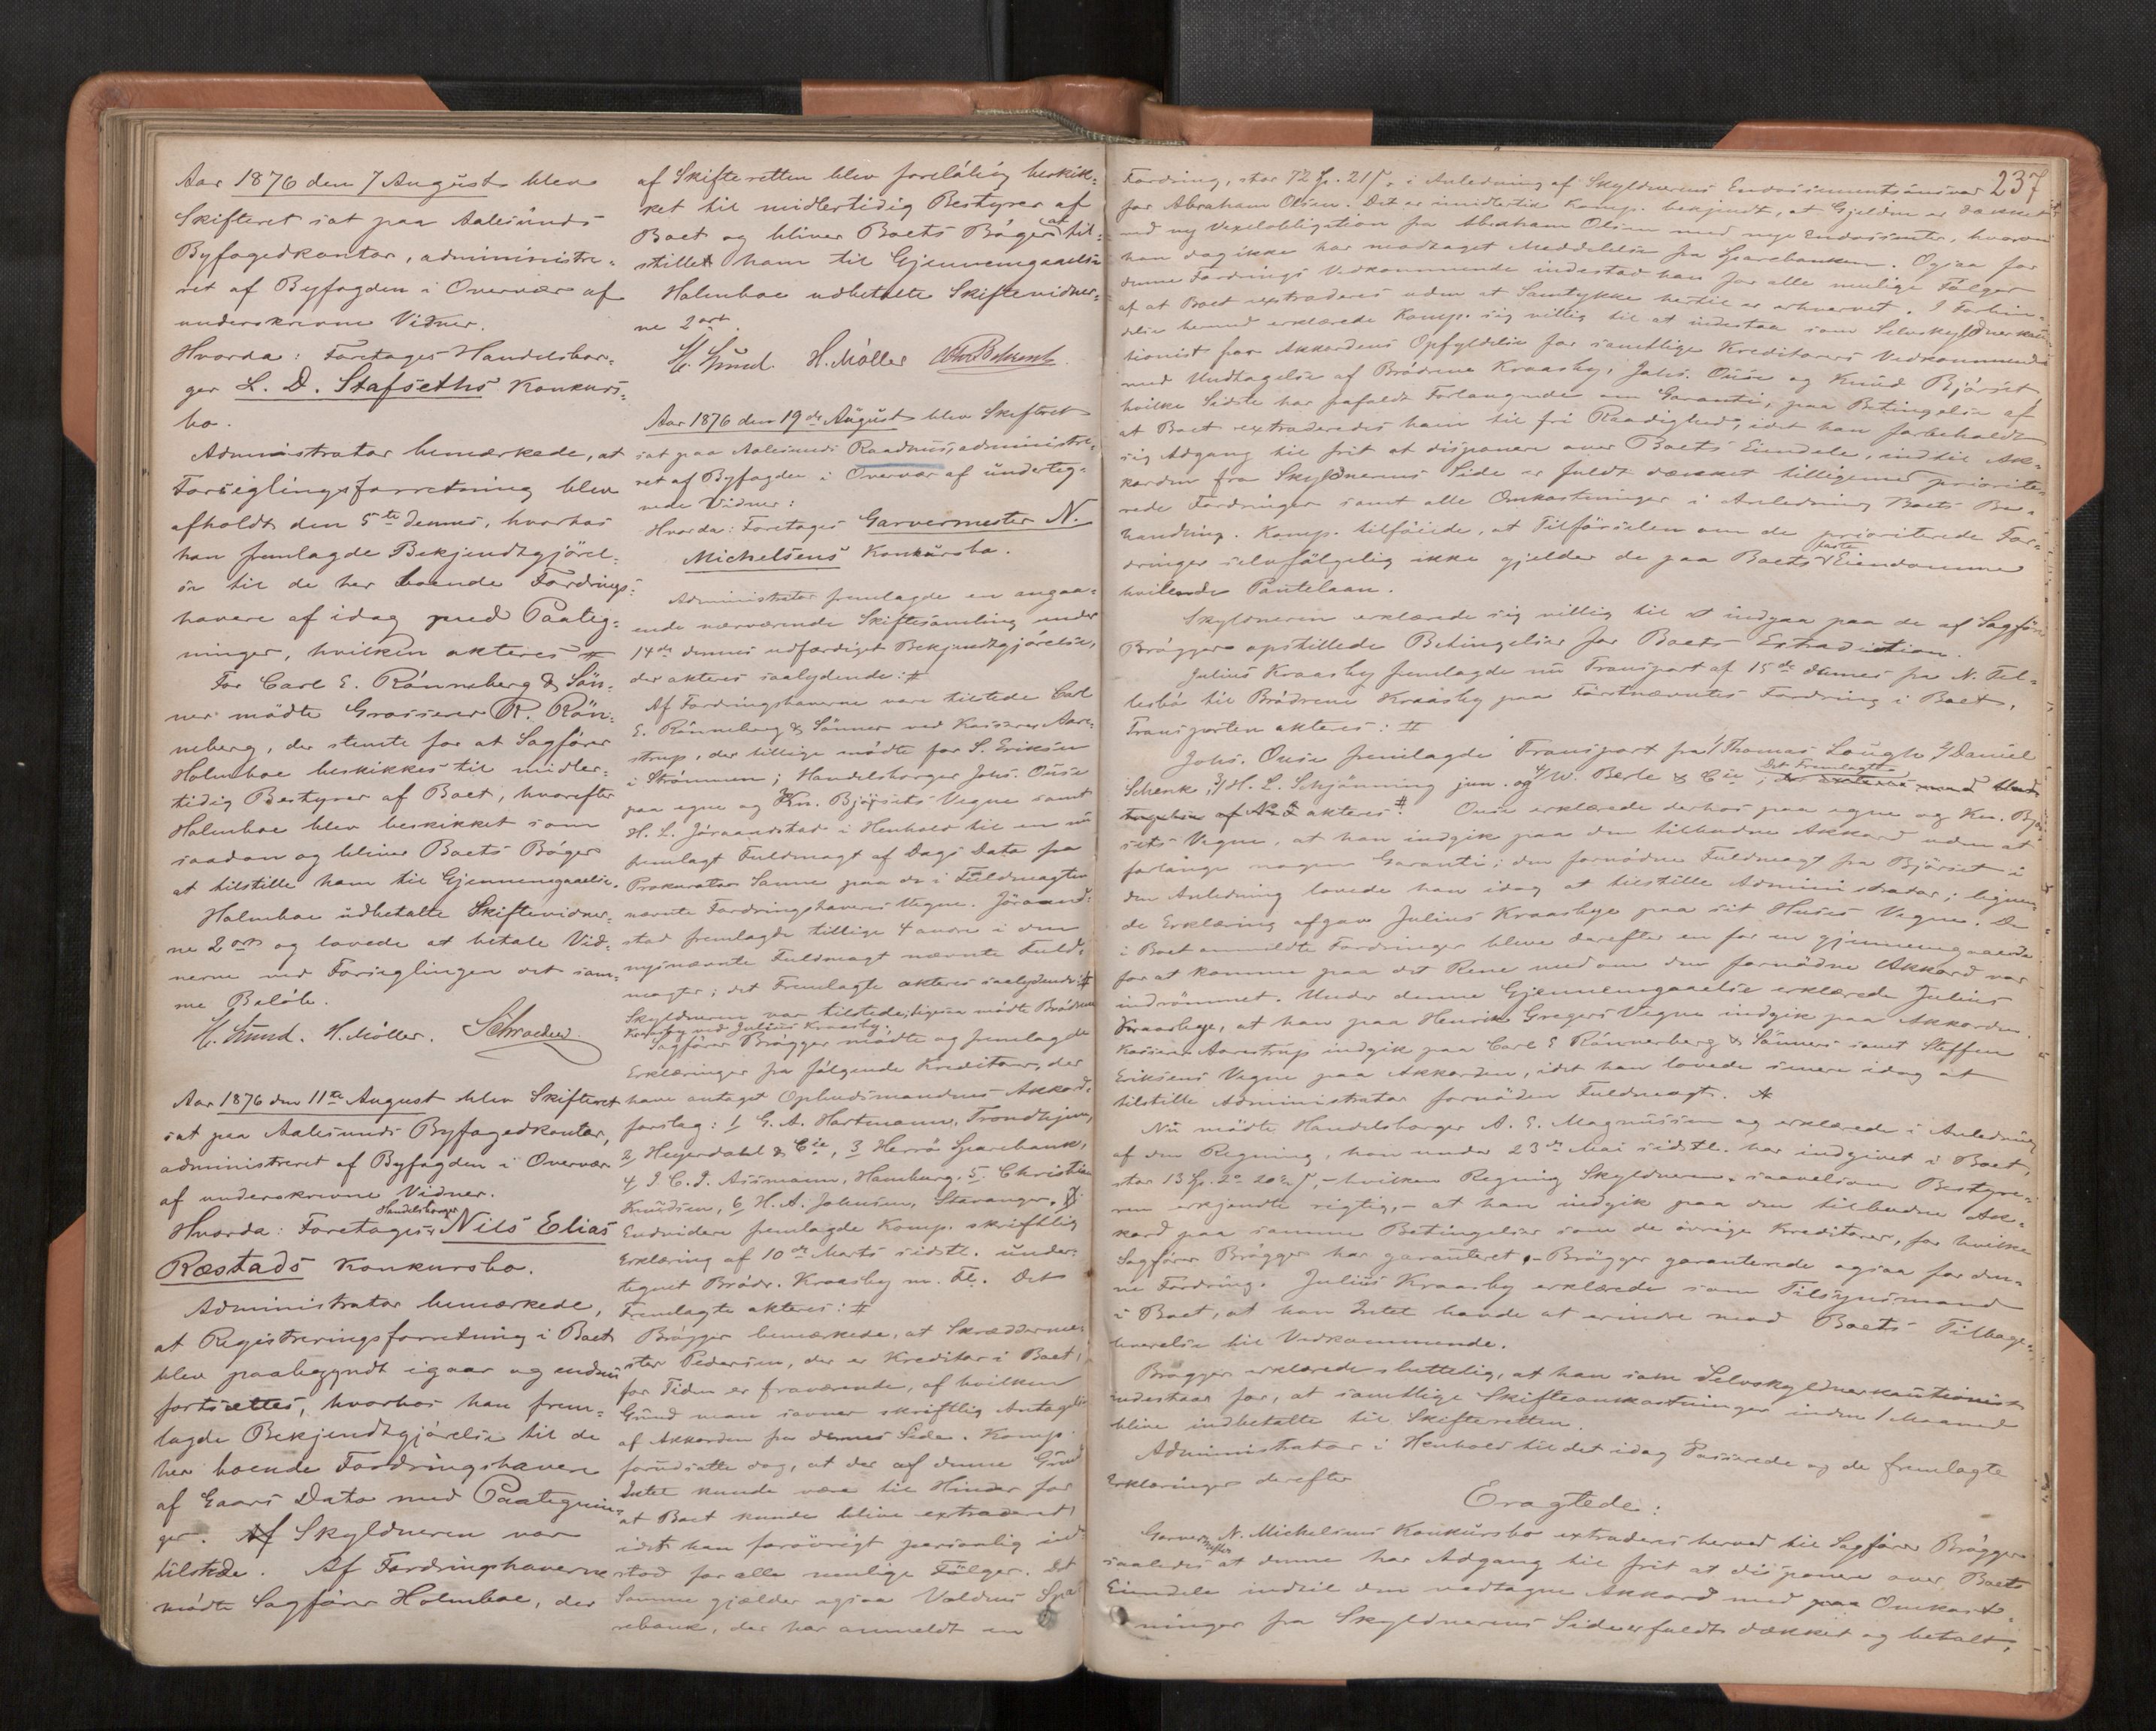 Aar 1876 den 7 August blev
Skifteret sat paa Aalesunds
Byfogedkontor, administre-
ret af Byfogden i Overvær af
underskrevne Vidner.
Hvorda: Foretages Handelsbor-
ger L. D. Stafseths Konkurs-
bo.
Administrator bemærkede, at
Forseglingsforretning blev
afholdt den 5te dennes, hvorhos
han fremlagde Bekjendtgjörel-
se til de her boende Fordrings-
havere af idag med Paateg-
ninger, hvilken akteres #
For Carl E. Rönneberg & Søn-
ner mödte Grosserer R. Rön-
neberg, der stemte for at Sagförer
Holmboe beskikkes til midler-
tidig Bestyrer af Boet, hvorefter
Holmboe blev beskikket som
saadan og bliver Boets Böger
at tilstille ham til Gjennemgaaelse.
Holmboe udbetalte Skiftevidner-
ne 2 ort og lovede at betale Vid-
nerne ved Forseglingen det sam-
me Belöb.
H. Grund. H. Möller. Schroeder
Aar 1876 den 11te August blev Skifteret
sat paa Aalesunds Byfogedkontor,
administreret af Byfogden i Overvær
af underskrevne Vidner.
Hvorda: Foretages Handelsborger Nils Elias
Ræstads Konkursbo.
Administrator bemærkede,
at Registreringsforretning i Boet
blev paabegyndt igaar og endnu
fortsættes, hvorhos han frem-
lagde Bekjendtgjörelse til de
her boende Fordringshavere
af Gaars Dato med Paategnin-
ger. Af Skyldneren var
tilstede. Af Fordringshaverne
mödte Sagförer Holmboe, der
af Skifteretten blev foreløbig beskik-
ket til midlertidig Bestyrer af
Boet og bliver Boets Böger at til-
stillet ham til Gjennemgaaelse
Holmboe udbetalte Skiftevidner-
ne 2 ort.
H. Grund. H. Möller
Aar 1876 den 19de August blev Skifteret
sat paa Aalesunds Raadhus, administre-
ret af Byfogden i Overvær af underteg-
nede Vidner:
Hvorda: Foretages Garvermester N.
Michelsens Konkursbo.
Administrator fremlagde en angaa-
ende nærværende Skiftesamling under
14de dennes udfærdiget Bekjendtgjörelse,
der akteres saalydende: #
Af Fordringshaverne vare tilstede Carl
E. Rönneberg & Sönner ved Kasserer Aare-
strup, der tillige mödte for S. Eriksen
i Strömmen; Handelsborger Johs. Ouse
paa egne og Kn. Björsets Vegne samt
H. L. Jöraandstad i Henhold til en nu
fremlagt Fuldmagt af Dags Dato fra
Prokurator Sanne paa de i Fuldmagten
nævnte Fordringshaveres Vegne. Jöraand-
stad fremlagde tillige 4 andre i den
nysnævnte Fuldmagt nævnte Fuld-
magter; det Fremlagte akteres saalydende: #
Skyldneren var tilstede; ligesaa mödte Brödrene
Kraasby ved Julius Kraasby.
Sagförer Brögger mödte og fremlagde
Erklæringer fra fölgende Kreditorer, der
have antaget Opbudsmandens Akkord-
forslag: 1 G. A. Hartmann, Trondhjem,
2, Heyerdahl & Cie, 3 Herrö Sparebank,
4 J. C. J. Assmann, Hamburg. 5. Christian
Knudsen, 6 H. A. Johnsen, Stavanger.
Endvidere fremlagde Komp. skriftlig
Erklæring af 10de Marts sidstl. under-
tegnet Brödr. Kraasby m. Fl. Det
Fremlagte akteres: #
Brögger bemærkede, at Skrædderme-
ster Pedersen, der er Kreditor i Boet,
for Tiden er fraværende, af hvilken
Grund man savner skriftlig Antagelse
af Akkorden fra dennes Side. Komp.
forudsatte dog, at der af denne Grund
Intet kunde være til Hinder for
at Boet kunde blive extraderet,
idet han forövrigt personlig ind-
stod for alle mulige Fölger. Det
Samme gjælder ogsaa Voldens Spa-
rebank, der har anmeldt en
237
Fordring, stor 72 Sp. 21 s, i Anledning af Skyldnerens Endossementsansvar
for Abraham Olsen. Det er imidlertid Komp. bekjendt, at Gjelden er dækket
ved ny Vexelobligation fra Abraham Olsen med nye Endossenter, hvorom
han dog ikke har modtaget Meddelelse fra Sparebanken. Ogsaa for
denne Fordrings Vedkommende indestod han for alle mulige Fölger
af at Boet extraderes uden at Samtykke hertil er erhvervet. I Forbin-
delse hermed erklærede Komp. sig villig til at indestaa som Selvskyldnerkau-
tionist for Akkordens Opfyldelse for samtlige Kreditorers Vedkommende
med Undtagelse af Brödrene Kraasby, Johs. Ouse og Knud Björset,
hvilke Sidste har frafaldt Forlangende om Garanti, paa Betingelse af
at Boet extraderedes ham til fri Raadighed, idet han forbeholdt
sig Adgang til frit at disponere over Boets Eiendele, indtil Ak-
korden fra Skyldnerens Side er fuldt dækket tilligemed priorite-
rede Fordringer samt alle Omkostninger i Anledning Boets Be-
handling. Komp. tilföiede, at Tilförselen om de prioriterede For-
dringer selvfölgelig ikke gjelder de paa Boets faste Eiendomme
hvilende Pantelaan.
Skyldneren erklærede sig villig til at indgaa paa de af Sagförer
Brögger opstillede Betingelser for Boets Extradition.
Julius Kraasby fremlagde nu Transport af 15de dennes fra N. Tel-
lesbö til Brödrene Kraasby paa Førstnævntes Fordring i Boet.
Transporten akteres: #
Johs. Ouse fremlagde Transport fra 1/ Thomas Lough 2/ Daniel
Schenk, 3/ H. L. Schjönning jun. og 4/ W. Berle & Cie; Det Fremlagte
akteres: # Ouse erklærede derhos paa egne og Kn. Björ-
sets Vegne, at han indgik paa den tilbudne Akkord uden at
forlange nogen Garanti; den fornödne Fuldmagt fra Björset i
den Anledning lovede han idag at tilstille Administrator; lignen-
de Erklæring afgav Julius Kraasbye paa sit Huses Vegne. De
i Boet anmeldte Fordringer bleve derefter en for en gjennemgaaede
for at komme paa det Rene med om den fornödne Akkord var
indrömmet. Under denne Gjennemgaaelse erklærede Julius
Kraasbye, at han paa Henrik Gregers Vegne indgik paa Akkorden.
Kasserer Aarestrup indgik paa Carl E Rönneberg & Sönners samt Steffen
Eriksens Vegne paa Akkorden, idet han lovede senere idag at
tilstille Administrator fornöden Fuldmagt. #
Nu mödte Handelsborger A. E. Magnussen og erklærede i Anledning
af den Regning, han under 23de Mai sidstl. har indgivet i Boet,
stor 13 Sp. 2 20 s, - hvilken Regning Skyldneren saavelsom Bestyre-
ren erkjendte rigtig, - at han indgik paa den tilbudne Ak-
kord paa samme Betingelser som de övrige Kreditorer, for hvilke
Sagförer Brögger har garanteret. - Brögger garanterede ogsaa for den-
ne Fordring. Julius Kraasby erklærede som Tilsynsmand
i Boet, at han Intet havde at erindre mod Boets Tilbage-
leverelse til Vedkommende.
Brögger erklærede sluttelig, at han som Selvskyldnerkautionist
indestaar for, at samtlige Skifteomkostninger inden 1 Maaned
blive indbetalte til Skifteretten.
Administrator i Henhold til det idag Passerede og de fremlagte
Erklæringer derefter
Eragtede:
Garverm. N. Michelsens Konkursbo extraderes herved til Sagförer Brögger
saaledes at denne har Adgang til frit at disponere over Boets
Eiendele indtil den vedtagne Akkord med paa Omkost-
ninger fra Skyldnerens Side er fuldt dækket og betalt,